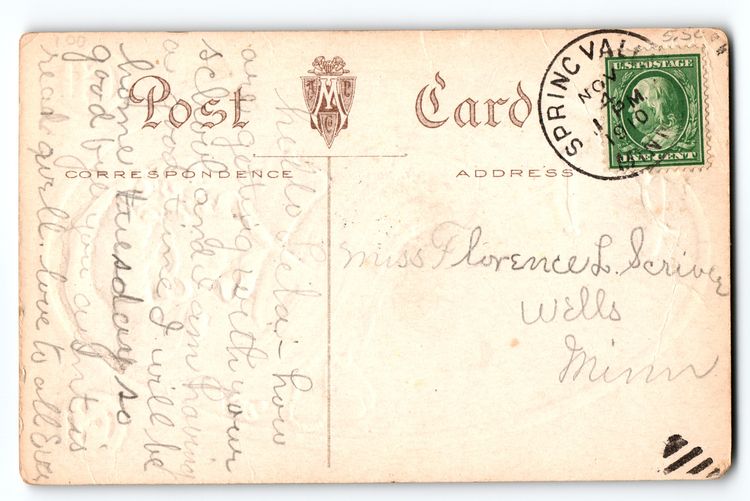 Post Card
CORRESPONDENCE
ADDRESS
SPRING VAL
NOV
MINN
U.S. POSTAGE
ONE CENT
Miss Florence L. Scriver
Wells
Minn
hello :- how
are getting with your
school and I am having
a good time I will be
home tuesday so
good bye you aunt is
real well. love to all Ever
1.00